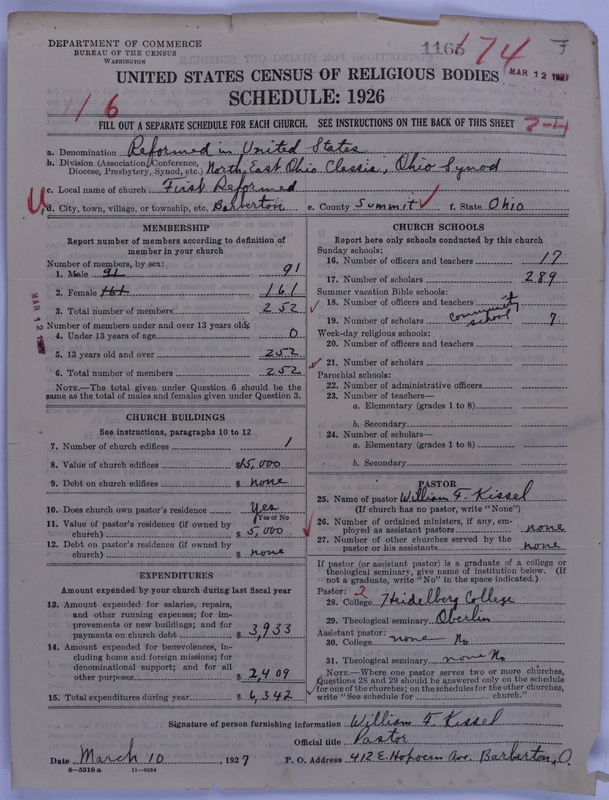 DEPARTMENT OF COMMERCE
BUREAU OF THE CENSUS
WASHINGTON
1165 174 F
MAR 12 1927
UNITED STATES CENSUS OF RELIGIOUS BODIES
SCHEDULE: 1926
116
FILL OUT A SEPARATE SCHEDULE FOR EACH CHURCH. SEE INSTRUCTIONS ON THE BACK OF THIS SHEET
2-4
a. Denomination Reformed in United States
b. Division (Association, Conference, Diocese, Presbytery, Synod, etc.) North East Ohio Classis, Ohio Synod
c. Local name of church First Reformed
U d. City, town, village, or township, etc. Barberton e. County Summit f. State Ohio
MEMBERSHIP
Report number of members according to definition of
member in your church
Number of members, by sex:
1. Male 91 91
2. Female 161 161
3. Total number of members 252
Number of members under and over 13 years old:
4. Under 13 years of age 0
5. 13 years old and over 252
6. Total number of members 252
NOTE.—The total given under Question 6 should be the
same as the total of males and females given under Question 3.
MAR 12 1927
CHURCH BUILDINGS
See instructions, paragraphs 10 to 12
7. Number of church edifices 1
8. Value of church edifices $15,000
9. Debt on church edifices $ none
10. Does church own pastor's residence Yes
(Yes or No
11. Value of pastor's residence (if owned by
church) $ 5,000
12. Debt on pastor's residence (if owned by
church) $ none
EXPENDITURES
Amount expended by your church during last fiscal year
13. Amount expended for salaries, repairs,
and other running expenses; for im-
provements or new buildings; and for
payments on church debt $ 3,933
14. Amount expended for benevolences, in-
cluding home and foreign missions; for
denominational support; and for all
other purposes $ 2,409
15. Total expenditures during year $ 6,342
CHURCH SCHOOLS
Report here only schools conducted by this church
Sunday schools:
16. Number of officers and teachers 17
17. Number of scholars 289
Summer vacation Bible schools:
18. Number of officers and teachers
19. Number of scholars Community school 7
Week-day religious schools:
20. Number of officers and teachers
21. Number of scholars
Parochial schools:
22. Number of administrative officers
23. Number of teachers—
a. Elementary (grades 1 to 8)
b. Secondary
24. Number of scholars—
a. Elementary (grades 1 to 8)
b. Secondary
PASTOR
25. Name of pastor William F. Kissel
(If church has no pastor, write "None")
26. Number of ordained ministers, if any, em-
ployed as assistant pastors none
27. Number of other churches served by the
pastor or his assistants none
If pastor (or assistant pastor) is a graduate of a college or
theological seminary, give name of institution below. (If
not a graduate, write "No" in the space indicated.)
Pastor: 2
28. College Heidelberg College
29. Theological seminary Oberlin
Assistant pastor:
30. College none No
31. Theological seminary none No
NOTE.—Where one pastor serves two or more churches,
Questions 28 and 29 should be answered only on the schedule
for one of the churches; on the schedules for the other churches,
write "See schedule for church."
Signature of person furnishing information William F. Kissel
Official title Pastor
Date March 10, 1927 P. O. Address 412 E. Hopocan Ave. Barberton, O.
8—5518 a 11—9054